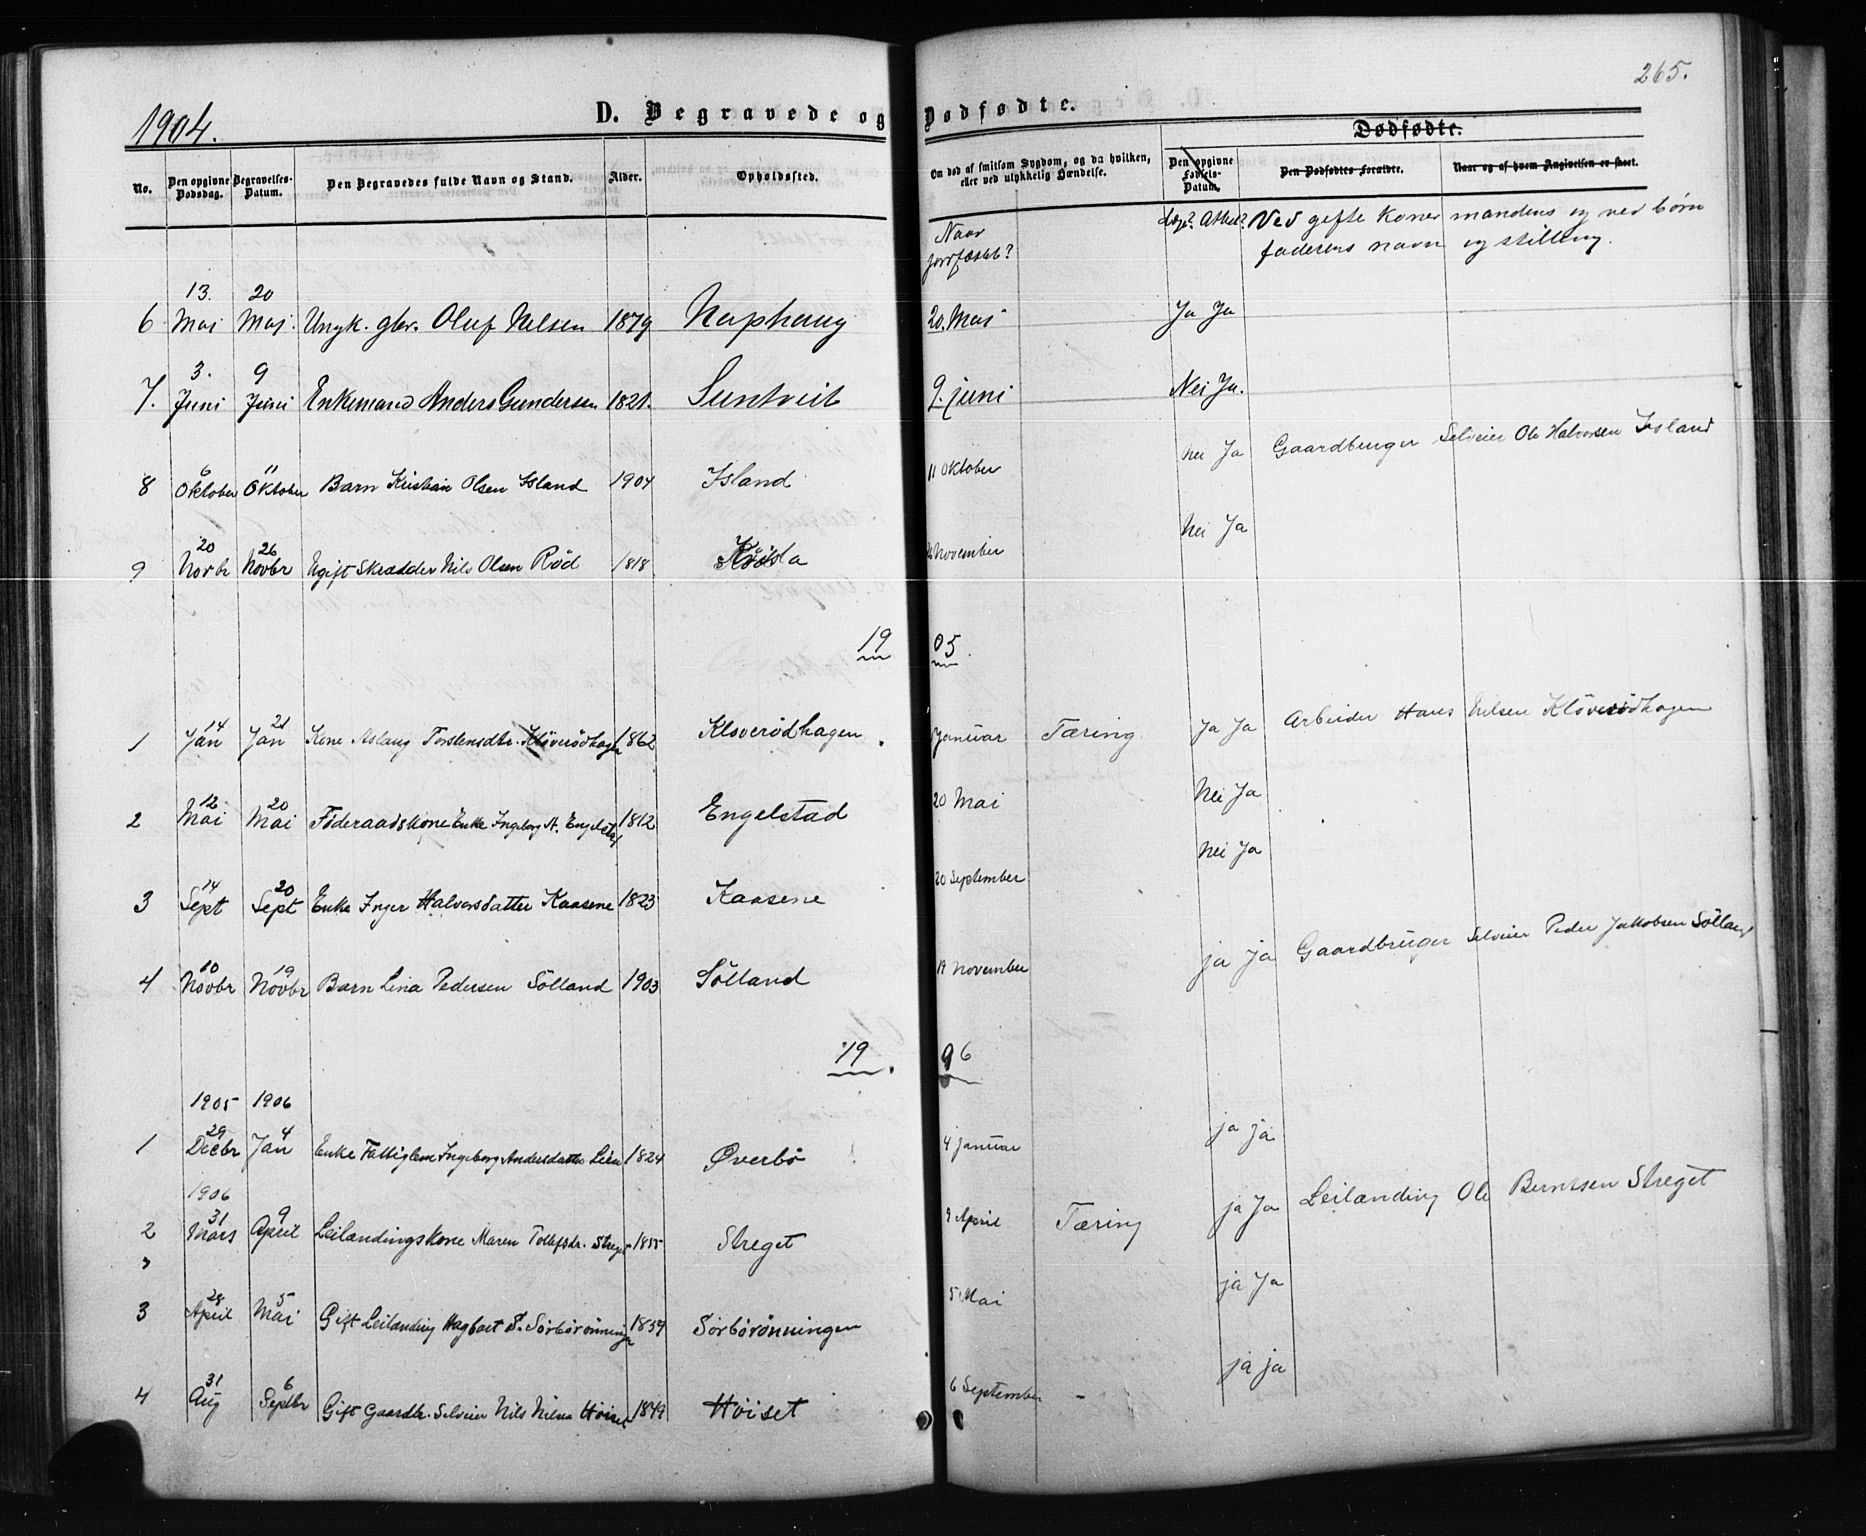 265.
1904.
D. Begravede og Dødfødte.
Dødfødte.
No. Den opgivne Dødsdag. Begravelses-Datum. Den Begravedes fulde Navn og Stand. Alder. Opholdssted. Om død af smitsom Sygdom, og da hvilken, eller ved ulykkelig Hændelse. Den opgivne Fødsels-Datum. Den Dødfødtes Forældre. Naar og af hvem Angivelsen er skeet.
Naar jordfæstet? Læge? Attest? Ved gifte koner mandens og ved børn
faderens navn og stilling.
6 13. Mai 20 Maj Ungk. gbr. Oluf Nilsen 1879 Naphaug 20. Mai Ja Ja
7. 3. Juni 9 Juni Enkemand Anders Gundersen 1821. Suntveit 9. juni Nei Ja.
8 6 Oktober 11 Oktober Barn Kristian Olsen Island 1904 Island 11 Oktober Nei Ja Gaardbruger Selveier Ole Halvorsen Island
9 20 Novbr 26 Novbr Ugift Skrædder Nils Olsen Rød 1818 November Nei Ja
1905
1 14 Jan 21 Jan Kone Aslaug Torstensdtr. Kløverødhagen 1862 Kloverødhagen Januar Tæring Ja Ja Arbeider Hans Nilsen Kløverødhagen
2 12 Mai 20 Mai Føderaadskone Enke Ingeborg A. Engelstad 1812 Engelstad 20 Mai Nei Ja
3 14 Sept 20 Sept Enke Inger Halvorsdatter Kaasene 1823 Kaasene 20 September Nei Ja
4 10 Novbr 19 Novbr Barn Lina Pedersen Sölland 1903 Sölland 19 November ja Ja Gaardbruger Selveier Peder Jakobsen Sölland
1906
1905 1906
1 29 Decbr 4 Jan Enke Fattiglem Ingeborg Andersdatter Lien 1824 Øverbö 4 januar ja ja
1906
2 31 Mars 9 April Leilændingskone Maren Tollefsdr. Streget 1855 Streget 9 April Tæring ja Ja Leilænding Ole Berntsen Streget
3 28 April 5 Mai Gift Leilænding Hagbart P. Sörbörönningen 1859 Sörbörönningen 5 Mai ja Ja
4 31 Aug 6 Septbr Gift Gaardbr. Selveier Nils Nilsen Höiset 1849 Höiset 6 September ja ja